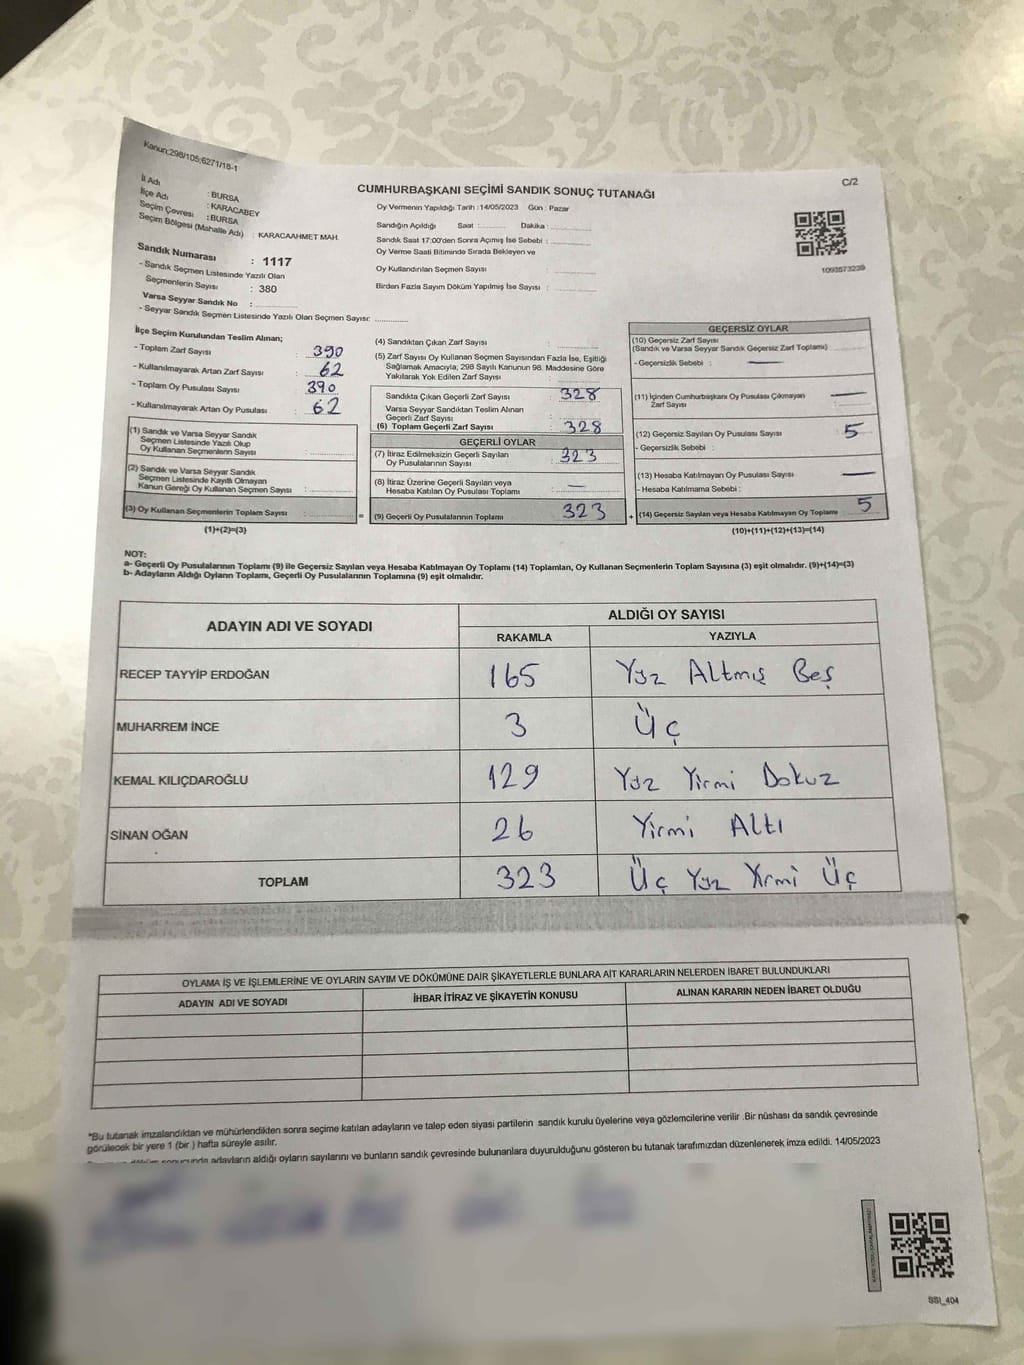 Kanun;298/105;6271/18-1
C/2
CUMHURBAŞKANI SEÇİMİ SANDIK SONUÇ TUTANAĞI
İl Adı : BURSA
İlçe Adı : KARACABEY
Seçim Çevresi : BURSA
Seçim Bölgesi (Mahalle Adı) : KARACAAHMET MAH.
Sandık Numarası : 1117
- Sandık Seçmen Listesinde Yazılı Olan
Seçmenlerin Sayısı : 380
Varsa Seyyar Sandık No :
- Seyyar Sandık Seçmen Listesinde Yazılı Olan Seçmen Sayısı:
Oy Vermenin Yapıldığı Tarih :14/05/2023 Gün : Pazar
Sandığın Açıldığı Saat : Dakika :
Sandık Saat 17:00'den Sonra Açımış İse Sebebi :
Oy Verme Saati Bitiminde Sırada Bekleyen ve
Oy Kullandırılan Seçmen Sayısı :
Birden Fazla Sayım Döküm Yapılmış İse Sayısı :
1093573239
İlçe Seçim Kurulundan Teslim Alınan;
- Toplam Zarf Sayısı : 390
- Kullanılmayarak Artan Zarf Sayısı : 62
- Toplam Oy Pusulası Sayısı : 390
- Kullanılmayarak Artan Oy Pusulası : 62
(1) Sandık ve Varsa Seyyar Sandık
Seçmen Listesinde Yazılı Olup
Oy Kullanan Seçmenlerin Sayısı :
(2) Sandık ve Varsa Seyyar Sandık
Seçmen Listesinde Kayıtlı Olmayan
Kanun Gereği Oy Kullanan Seçmen Sayısı :
(3) Oy Kullanan Seçmenlerin Toplam Sayısı :
(1)+(2)=(3)
(4) Sandıktan Çıkan Zarf Sayısı :
(5) Zarf Sayısı Oy Kullanan Seçmen Sayısından Fazla İse, Eşitliği
Sağlamak Amacıyla; 298 Sayılı Kanunun 98. Maddesine Göre
Yakılarak Yok Edilen Zarf Sayısı :
Sandıkta Çıkan Geçerli Zarf Sayısı : 328
Varsa Seyyar Sandıktan Teslim Alınan
Geçerli Zarf Sayısı :
(6) Toplam Geçerli Zarf Sayısı : 328
GEÇERLİ OYLAR
(7) İtiraz Edilmeksizin Geçerli Sayılan
Oy Pusulalarının Sayısı : 323
(8) İtiraz Üzerine Geçerli Sayılan veya
Hesaba Katılan Oy Pusulası Toplamı : —
=
(9) Geçerli Oy Pusulalarının Toplamı : 323
+
GEÇERSİZ OYLAR
(10) Geçersiz Zarf Sayısı
(Sandık ve Varsa Seyyar Sandık Geçersiz Zarf Toplamı)
- Geçersizlik Sebebi : —
(11) İçinden Cumhurbaşkanı Oy Pusulası Çıkmayan
Zarf Sayısı : —
(12) Geçersiz Sayılan Oy Pusulası Sayısı : 5
- Geçersizlik Sebebi :
(13) Hesaba Katılmayan Oy Pusulası Sayısı —
- Hesaba Katılmama Sebebi :
(14) Geçersiz Sayılan veya Hesaba Katılmayan Oy Toplamı : 5
(10)+(11)+(12)+(13)=(14)
NOT:
a- Geçerli Oy Pusulalarının Toplamı (9) ile Geçersiz Sayılan veya Hesaba Katılmayan Oy Toplamı (14) Toplamları, Oy Kullanan Seçmenlerin Toplam Sayısına (3) eşit olmalıdır. (9)+(14)=(3)
b- Adayların Aldığı Oyların Toplamı, Geçerli Oy Pusulalarının Toplamına (9) eşit olmalıdır.
ADAYIN ADI VE SOYADI ALDIĞI OY SAYISI
RAKAMLA YAZIYLA
RECEP TAYYİP ERDOĞAN 165 Yüz Altmış Beş
MUHARREM İNCE 3 Üç
KEMAL KILIÇDAROĞLU 129 Yüz Yirmi Dokuz
SİNAN OĞAN 26 Yirmi Altı
TOPLAM 323 Üç Yüz Yirmi Üç
OYLAMA İŞ VE İŞLEMLERİNE VE OYLARIN SAYIM VE DÖKÜMÜNE DAİR ŞİKAYETLERLE BUNLARA AİT KARARLARIN NELERDEN İBARET BULUNDUKLARI
ADAYIN ADI VE SOYADI İHBAR İTİRAZ VE ŞİKAYETİN KONUSU ALINAN KARARIN NEDEN İBARET OLDUĞU
*Bu tutanak imzalandıktan ve mühürlendikten sonra seçime katılan adayların ve talep eden siyasi partilerin sandık kurulu üyelerine veya gözlemcilerine verilir .Bir nüshası da sandık çevresinde
görülecek bir yere 1 (bir ) hafta süreyle asılır.
sonucunda adayların aldığı oyların sayılarını ve bunların sandık çevresinde bulunanlara duyurulduğunu gösteren bu tutanak tarafımızdan düzenlenerek imza edildi. 14/05/2023
SSI_404